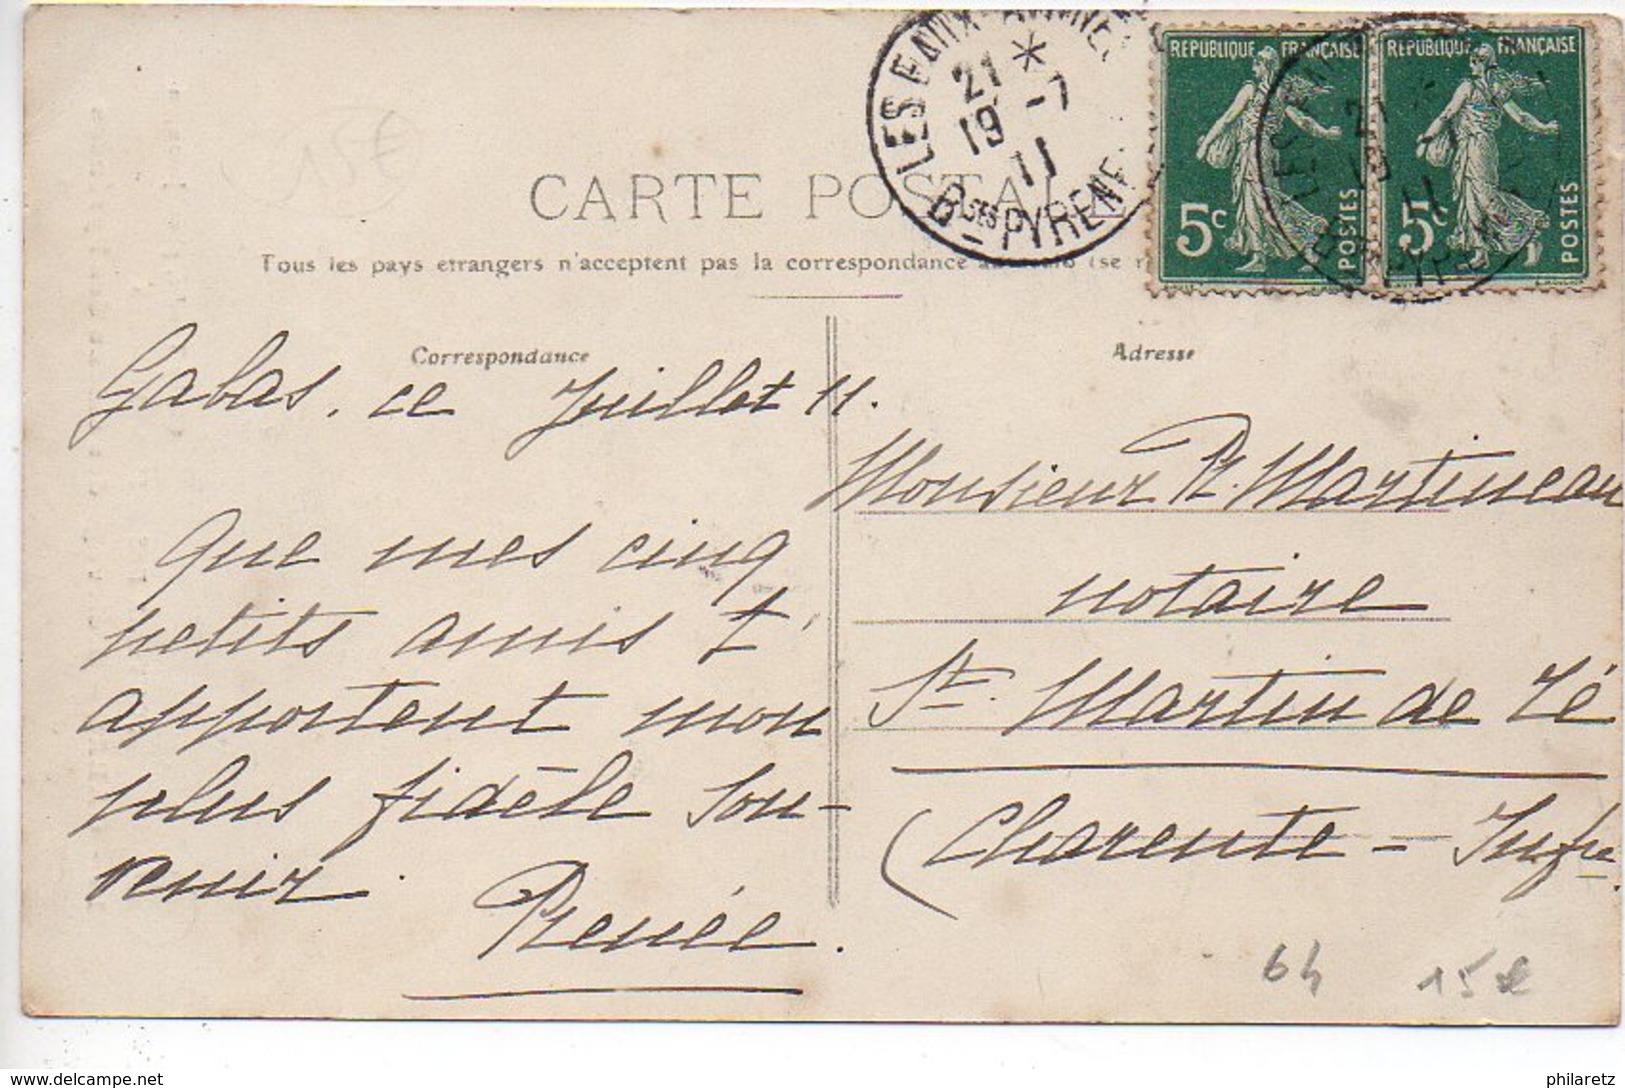 15€
CARTE POSTALE
Tous les pays etrangers n'acceptent pas la correspondance
LES EAUX
21 *
19 -7
11
Bses PYRENE
REPUBLIQUE FRANÇAISE
5c
POSTES
REPUBLIQUE FRANÇAISE
5c
POSTES
21
19 -7
11
Correspondance
Gabas. ce Juillet 11.
Que mes cinq
petits amis t'
apportent mon
plus fidèle sou-
venir.
Renée.
Adresse
Monsieur R. Martineau
notaire
St. Martin de Ré
(Charente - Infre.
64 15€
delcampe.net
philaretz